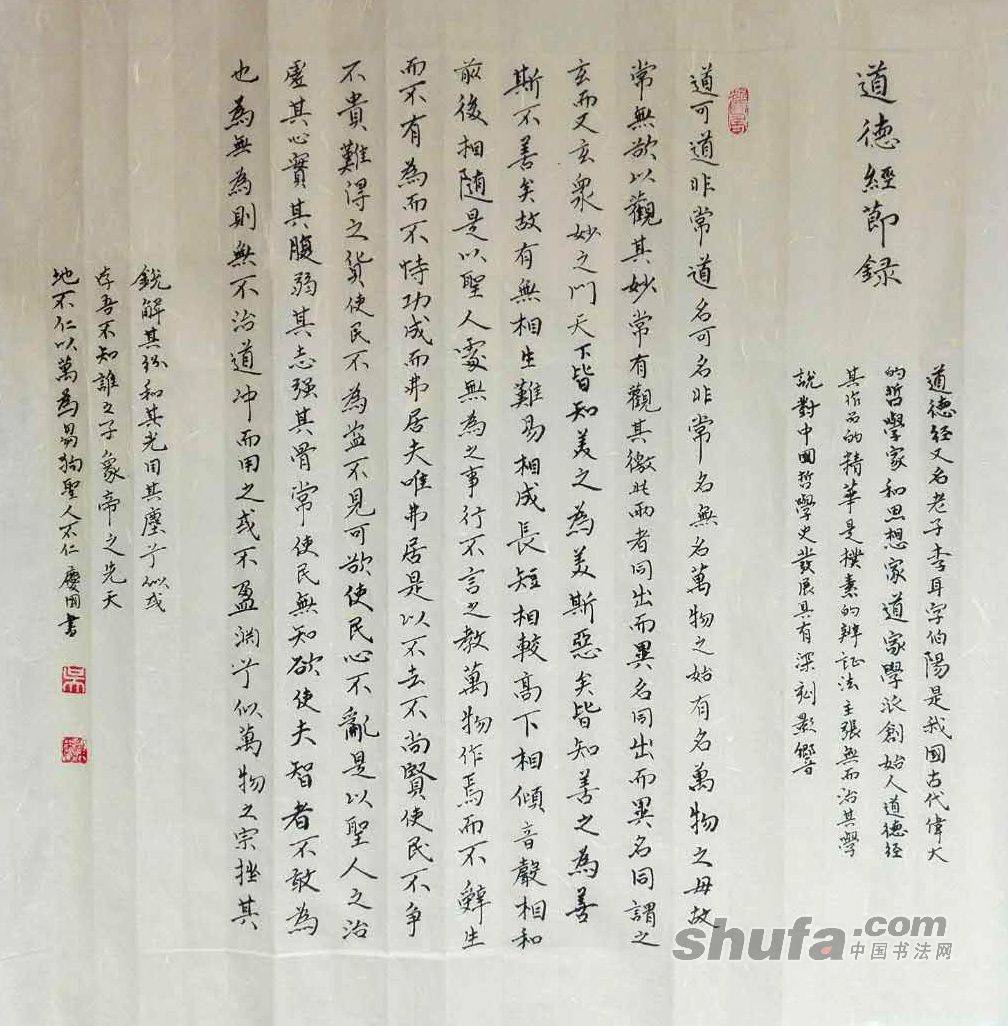 道德經節録
道德经又名老子李耳字伯陽是我國古代偉大
的哲學家和思想家道家學派創始人道德经
其作品的精華是樸素的辨証法主張無而治其學
説對中囯哲學史發展具有深刻影響
道可道非常道名可名非常名無名萬物之始有名萬物之母故
常無欲以觀其妙常有觀其徼此兩者同出而異名同出而異名同謂之
玄而又玄衆妙之门天下皆知美之為美斯惡矣皆知善之為善
斯不善矣故有無相生難易相成長短相較高下相傾音聲相和
前後相随是以聖人處無為之事行不言之教萬物作焉而不辭生
而不有為而不恃功成而弗居夫唯弗居是以不去不尚賢使民不争
不貴難得之货使民不為盗不見可欲使民心不亂是以聖人之治
虚其心實其腹弱其志强其骨常使民無知欲使夫智者不敢為
也為無為則無不治道冲而用之或不盈渊兮似萬物之宗挫其
銳解其纷和其光用其塵兮似或
存吾不知誰之子象帝之先天
地不仁以萬為芻狗聖人不仁慶国書
shufa.com
中国书法网